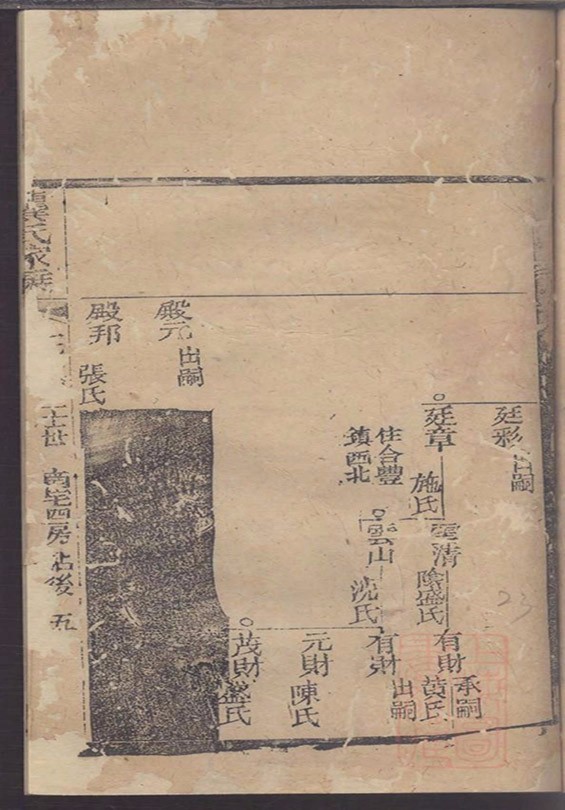 廷彩
出嗣
廷章
施氏
住合豐
鎮西北
雲清
陰盛氏
雲山
沈氏
有財
承嗣
黃氏
有財
出嗣
元財
陳氏
茂財
盛氏
殿元
出嗣
殿邦
張氏
氏家
世 南宅四房 後 五
23